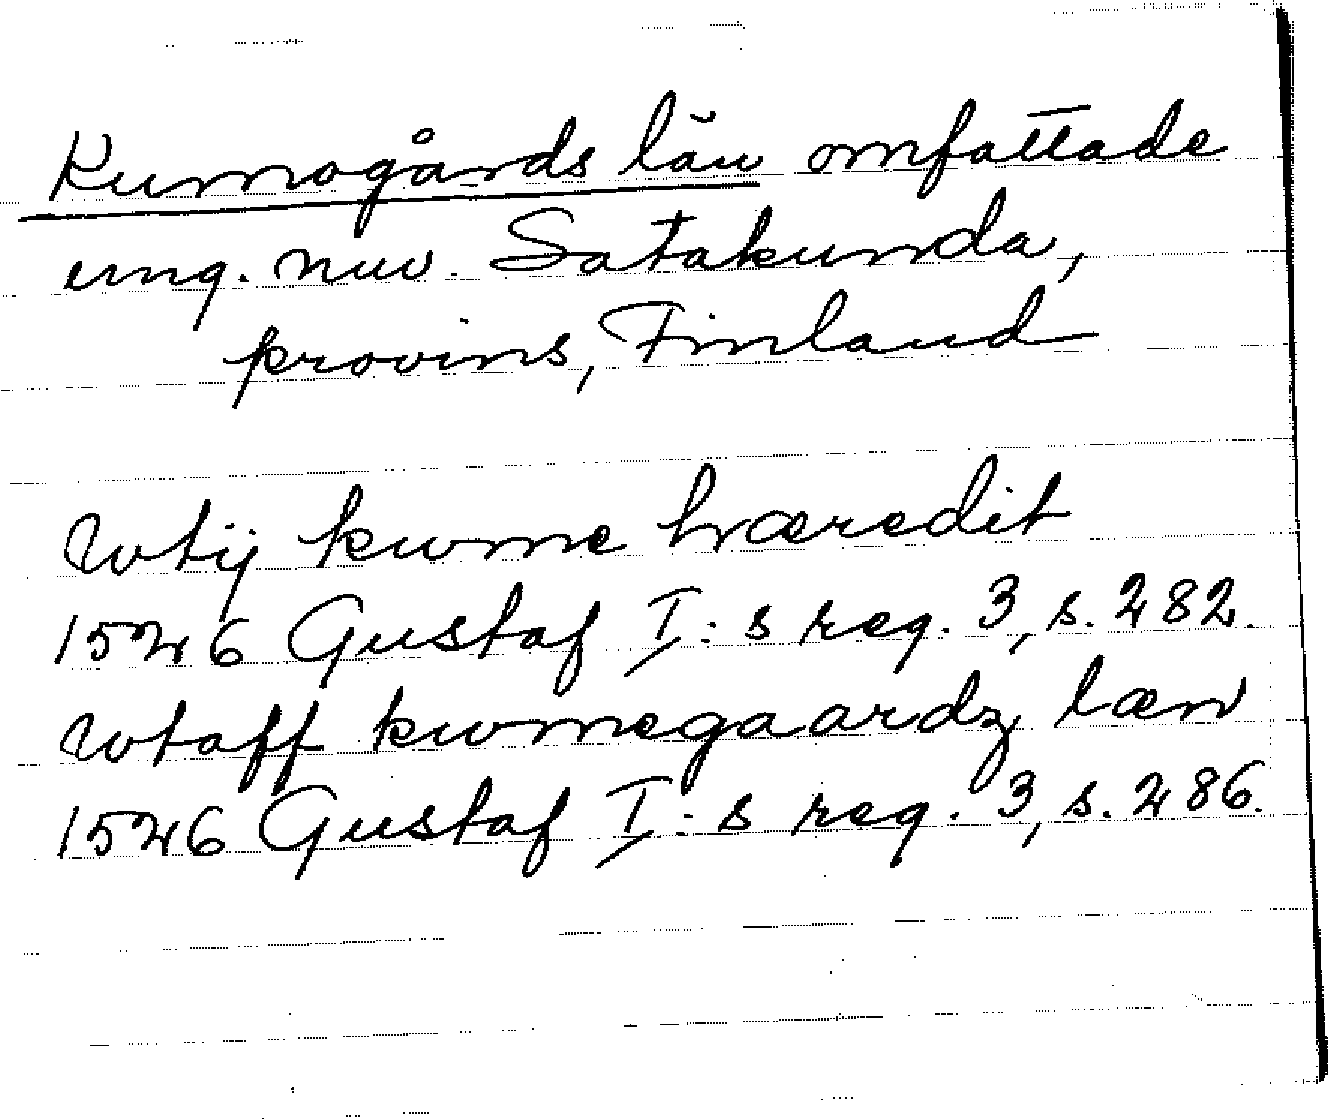 Kumogårds län omfattade
ung. nuv. Satakunda,
provins, Finland
wtij kwme hæredit
1526 Gustaf I:s reg. 3, s. 282.
wtaff kwmegaardz læn
1526 Gustaf I:s reg. 3, s. 286.